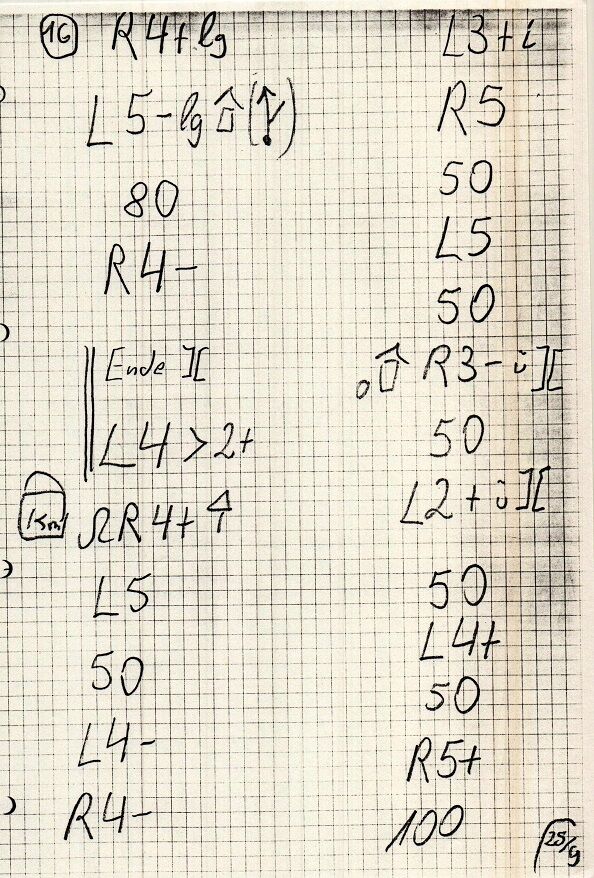 16 R4+lg
L5-lg (!)
80
R4-
Ende ][
L4>2+
ΩR4+
L5
50
L4-
R4-
L3+i
R5
50
L5
50
R3-ü][
50
L2+ü][
50
L4+
50
R5+
100
25/g